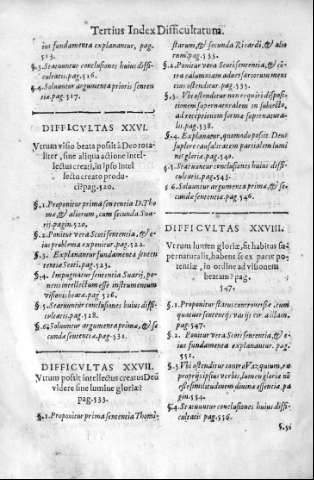 Tertius Index Difficultatum.
ius fundamenta explanantur, pag.
513.
§.3. Statuuntur conclusiones huius diffi-
cultatis. pag.516.
§.4. Soluuntur argumenta prioris senten
tia. pag.517.
DIFFICVLTAS XXVI.
Vtrum visio beata possit à Deo tota-
liter, sine aliqua actione intel-
lectus creari, in ipso intel
lectu creato produ-
ci? pag.520.
§.1. Proponitur prima sententia D. Tho
mæ, & aliorum, cum secunda Sua-
rij. pagin.520.
§.2. Ponitur vera Scoti sententia, & e-
ius problemia expenitur. pag.522.
§.3. Explanantur fundamenta senten
tentia Scoti, pag.523.
§.4. Impugnatur sententia Suarij, po-
nens intellectum esse instrumentum
visionis beatæ. pag.526.
§.5. Statuuntur conclusiones huius diffi-
cultatis. pag.528.
§.6. Soluuntur argumenta prima, & se
cunda sententia. pag.531.
DIFFICVLTAS XXVII.
Vtrum possit intellectus creatus Deū
videre sine lumine gloriæ?
pag.533.
§.1. Proponitur prima sententia Thomi-
starum, & secunda Ricardi, & alio
rum. pag.535.
§.2. Ponitur vera Scoti sententia, & cō
tra calumniam aduersariorum mens
eius ostenditur. pag.535.
§.3. Vbi ostenditur non requiri dispositi-
tionem supernaturalem in subiecto,
ad receptionem formæ supernatura-
lis. pag.538.
§.4. Explanatur, quomodo possit Deus
supplere causalitatem partialem lumi
nis gloriæ. pag.540.
§.5. Statuuntur conclusiones huius diffi-
cultatis. pag.543.
§.6. Soluuntur argumenta prima, & se-
cunda sententia. pag.546.
DIFFICVLTAS XXVIII.
Vtrum lumen gloriæ, sit habitus su-
pernaturalis, habens se ex parte po-
tentiæ, in ordine ad visionem
beatam? pag.
547.
§.1. Proponitur status controuersiæ, cum
quatuor sententijs, varie
pag.547.
§.2. Ponitur vera Scoti sententia, & e-
ius fundamenta explanantur. pag.
552.
§.3. Vbi ostenditur contra Vazquium, ex
proprijs ipsius verbis, lumen gloriæ nō
esse similitudinem diuinæ essentiæ. pa
gin.554.
§.4. Statuuntur conclusiones huius diffi-
cultatis pag.556.